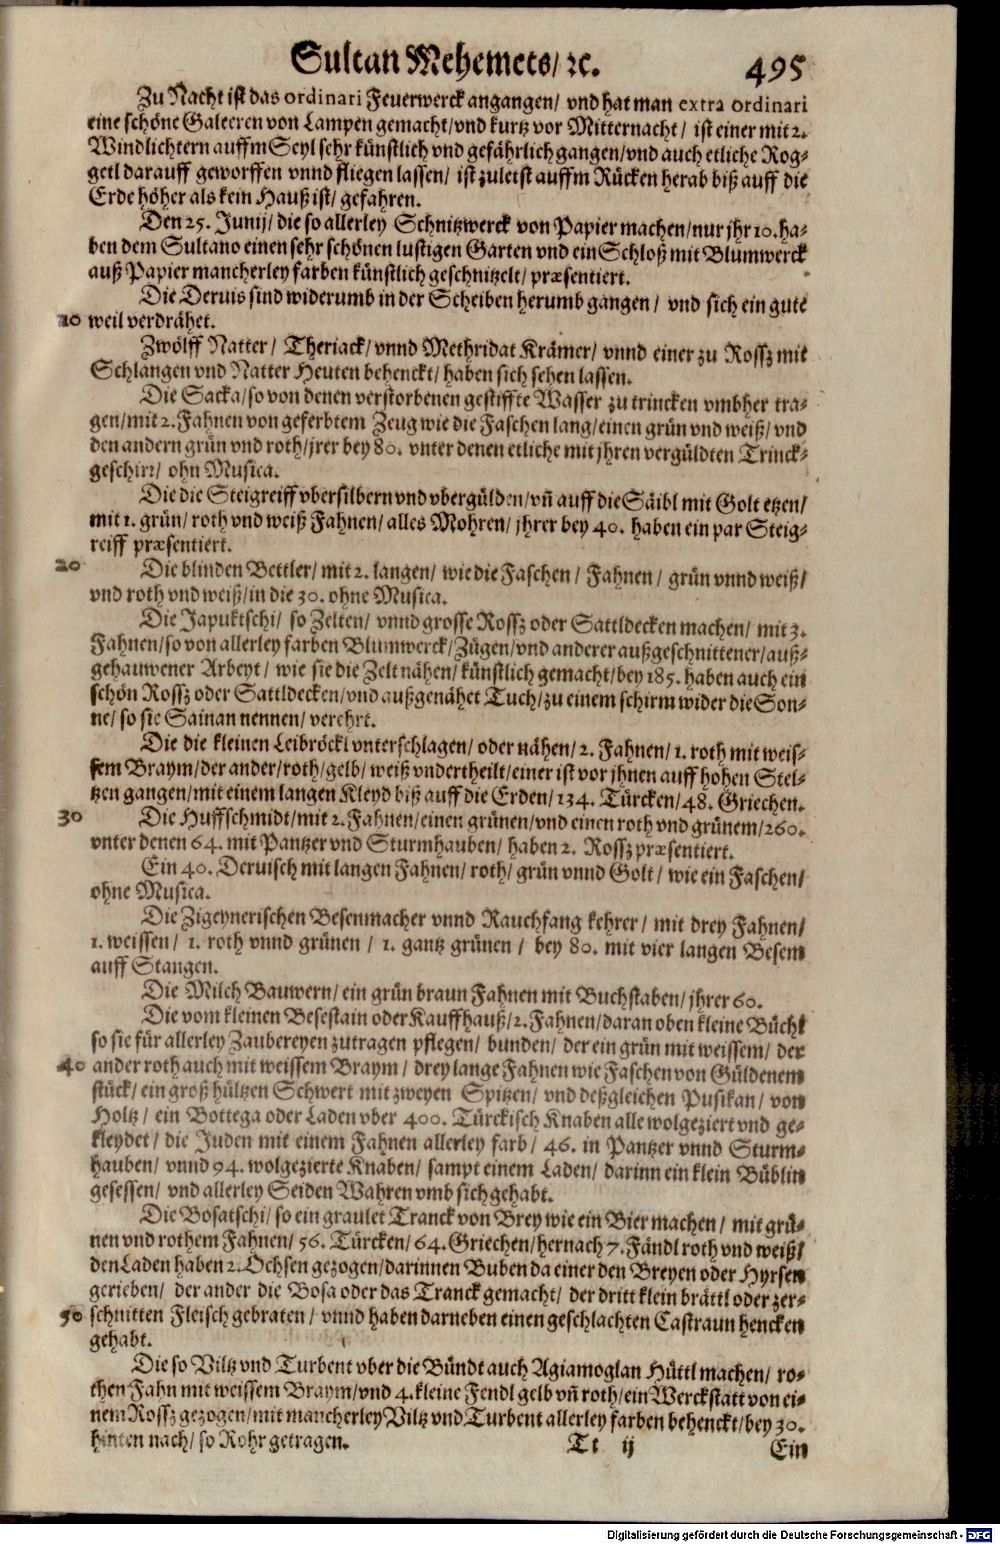 Sultan Mehemets/ ꝛc. 495
Zu Nacht ist das ordinari Feuerwerck angangen/ vnd hat man extra ordinari
eine schöne Galeeren von Lampen gemacht/ vnd kurtz vor Mitternacht/ ist einer mit 2.
Windlichtern auffm Seyl sehr künstlich vnd gefährlich gangen/ vnd auch etliche Rog-
getl darauff geworffen vnnd fliegen lassen/ ist zuletst auffm Rücken herab biß auff die
Erde höher als kein Hauß ist/ gefahren.
Den 25. Junij/ die so allerley Schnitzwerck von Papier machen/ nur jhr 10. ha-
ben dem Sultano einen sehr schönen lustigen Garten vnd ein Schloß mit Blumwerck
auß Papier mancherley farben künstlich geschnitzelt/ præsentiert.
Die Deruis sind widerumb in der Scheiben herumb gangen/ vnd sich ein gute
10 weil verdrähet.
Zwölff Natter/ Theriack/ vnnd Methridat Krämer/ vnnd einer zu Rossz mit
Schlangen vnd Natter Heuten behenckt/ haben sich sehen lassen.
Die Sacka/ so von denen verstorbenen gestiffte Wasser zu trincken vmbher tra-
gen/ mit 2. Fahnen von geferbtem Zeug wie die Faschen lang/ einen grün vnd weiß/ vnd
den andern grün vnd roth/ jrer bey 80. vnter denen etliche mit jhren vergüldten Trinck-
geschirr/ ohn Musica.
Die die Steigreiff vbersilbern vnd vbergülden/ vñ auff die Säibl mit Golt etzen/
mit 1. grün/ roth vnd weiß Fahnen/ alles Mohren/ jhrer bey 40. haben ein par Steig-
reiff præsentiert.
20 Die blinden Bettler/ mit 2. langen/ wie die Faschen/ Fahnen/ grün vnnd weiß/
vnd roth vnd weiß/ in die 30. ohne Musica.
Die Japuktschi/ so Zelten/ vnnd grosse Rossz oder Sattldecken machen/ mit 3.
Fahnen/ so von allerley farben Blumwerck/ Zügen/ vnd anderer außgeschnittener/ auß-
gehauwener Arbeyt/ wie sie die Zelt nähen/ künstlich gemacht/ bey 185. haben auch ein
schön Rossz oder Sattldecken/ vnd außgenähet Tuch/ zu einem schirm wider die Son-
ne/ so sie Sainan nennen/ verehrt.
Die die kleinen Leibröckl vnterschlagen/ oder nähen/ 2. Fahnen/ 1. roth mit weis-
sem Braym/ der ander/ roth/ gelb/ weiß vndertheilt/ einer ist vor jhnen auff hohen Stel-
tzen gangen/ mit einem langen Kleyd biß auff die Erden/ 134. Türcken/ 48. Griechen.
30 Die Huffschmidt/ mit 2. Fahnen/ einen grünen/ vnd einen roth vnd grünem/ 260.
vnter denen 64. mit Pantzer vnd Sturmhauben/ haben 2. Rossz præsentiert.
Ein 40. Deruisch mit langen Fahnen/ roth/ grün vnnd Golt/ wie ein Faschen/
ohne Musica.
Die Zigeynerischen Besenmacher vnnd Rauchfang kehrer/ mit drey Fahnen/
1. weissen/ 1. roth vnnd grünen/ 1. gantz grünen/ bey 80. mit vier langen Besem
auff Stangen.
Die Milch Bauwern/ ein grün braun Fahnen mit Buchstaben/ jhrer 60.
Die vom kleinen Besestain oder Kauffhauß/ 2. Fahnen/ daran oben kleine Bücht
so sie für allerley Zaubereyen zutragen pflegen/ bunden/ der ein grün mit weissem/ der
40 ander roth auch mit weissem Braym/ drey lange Fahnen wie Faschen von Güldenem
stück/ ein groß hültzen Schwert mit zweyen Spitzen/ vnd deßgleichen Pusikan/ von
Holtz/ ein Bottega oder Laden vber 400. Türckisch Knaben alle wolgeziert vnd ge-
kleydet/ die Juden mit einem Fahnen allerley farb/ 46. in Pantzer vnnd Sturm-
hauben/ vnnd 94. wolgezierte Knaben/ sampt einem Laden/ darinn ein klein Büblin
gesessen/ vnd allerley Seiden Wahren vmb sich gehabt.
Die Bosatschi/ so ein graulet Tranck von Brey wie ein Bier machen/ mit grü-
nen vnd rothem Fahnen/ 56. Türcken/ 64. Griechen/ hernach 7. Fändl roth vnd weiß/
den Laden haben 2. Ochsen gezogen/ darinnen Buben da einer den Breyen oder Hyrsen
gerieben/ der ander die Bosa oder das Tranck gemacht/ der dritt klein brättl oder zer-
50 schnitten Fleisch gebraten/ vnnd haben darneben einen geschlachten Castraun hencken
gehabt.
Die so Viltz vnd Turbent vber die Bündt auch Agiamoglan Hüttl machen/ ro-
then Fahn mit weissem Braym/ vnd 4. kleine Fendl gelb vñ roth/ ein Werckstatt von ei-
nem Rossz gezogen/ mit mancherley Viltz vnd Turbent allerley farben behenckt/ bey 30.
hinten nach/ so Rohr getragen.
Tt ij Ein
Digitalisierung gefördert durch die Deutsche Forschungsgemeinschaft - DFG